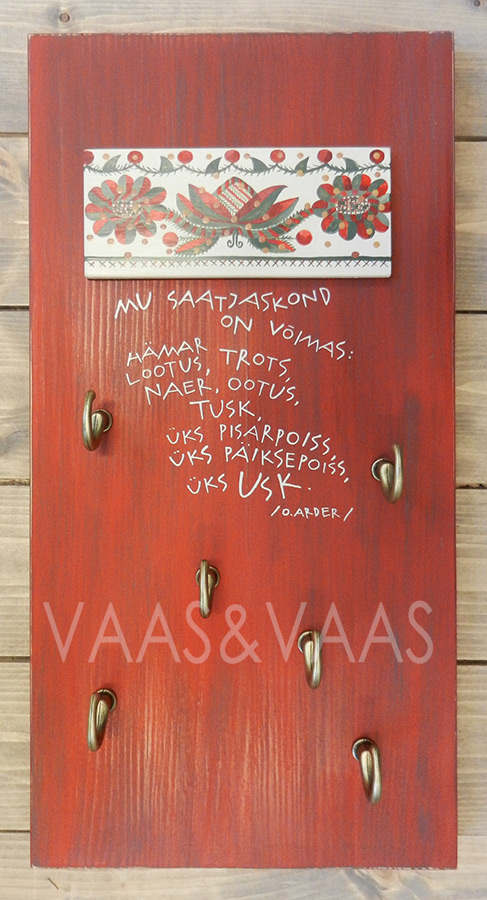 MU SAATJASKOND
ON VÕIMAS:
HÄMAR
LOOTUS, TROTS,
NAER, OOTUS,
TUSK,
ÜKS PISARPOISS,
ÜKS PÄIKSEPOISS,
ÜKS USK.
/O.ARDER/
VAAS&VAAS